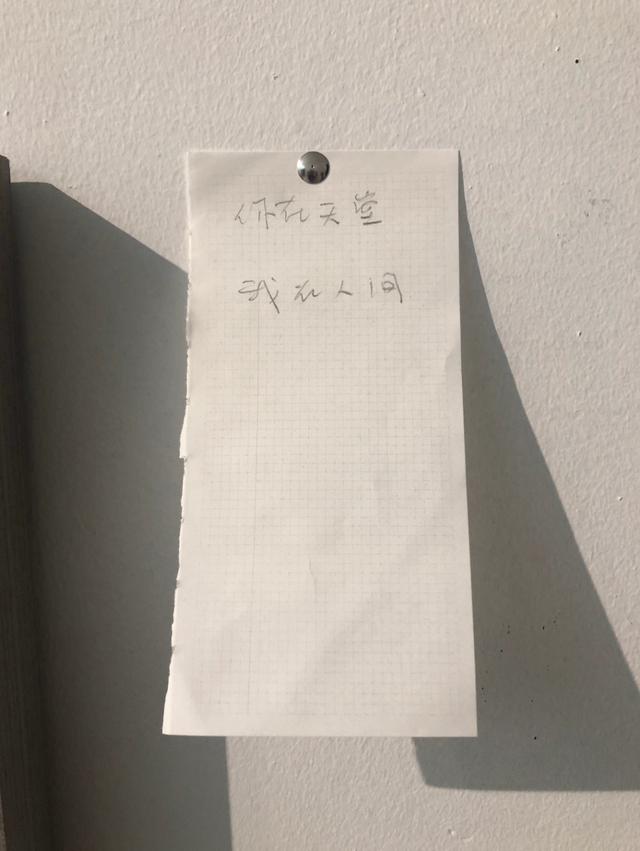 你在天堂
我在人间